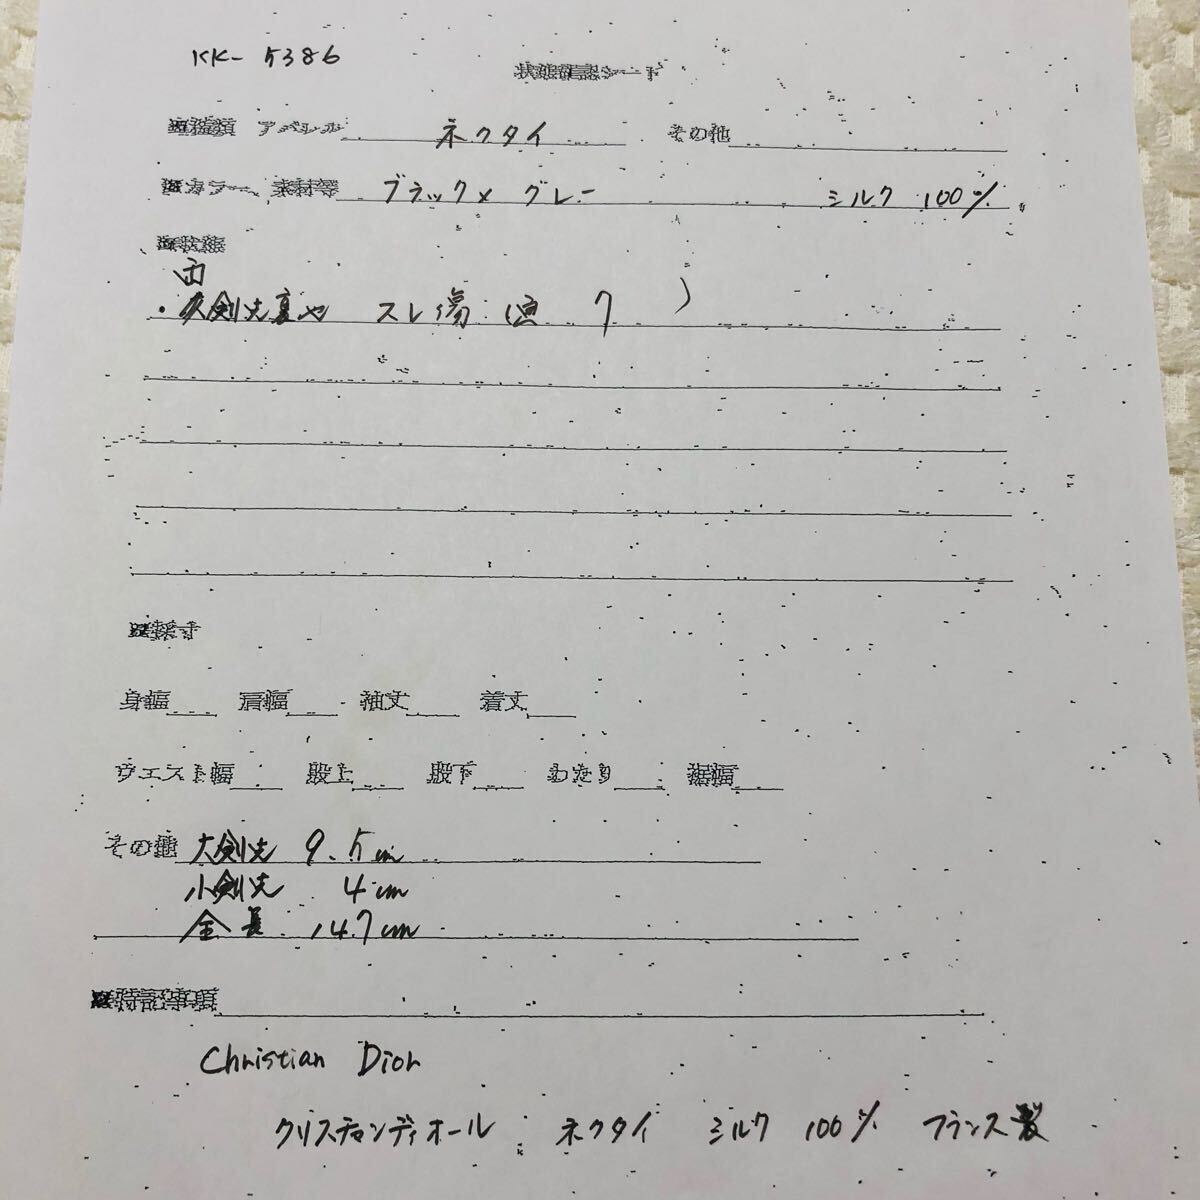 KK-5386
状態確認シート
■種類 アパレル ネクタイ その他
■カラー、素材等 ブラック×グレー シルク 100%
■状態
・大剣先裏や スレ傷
■採寸
身幅 肩幅 袖丈 着丈
ウエスト幅 股上 股下 わたり 裾幅
その他 大剣先 9.5cm
小剣先 4cm
全長 147cm
■特記事項
Christian Dior
クリスチャンディオール ネクタイ シルク 100% フランス製